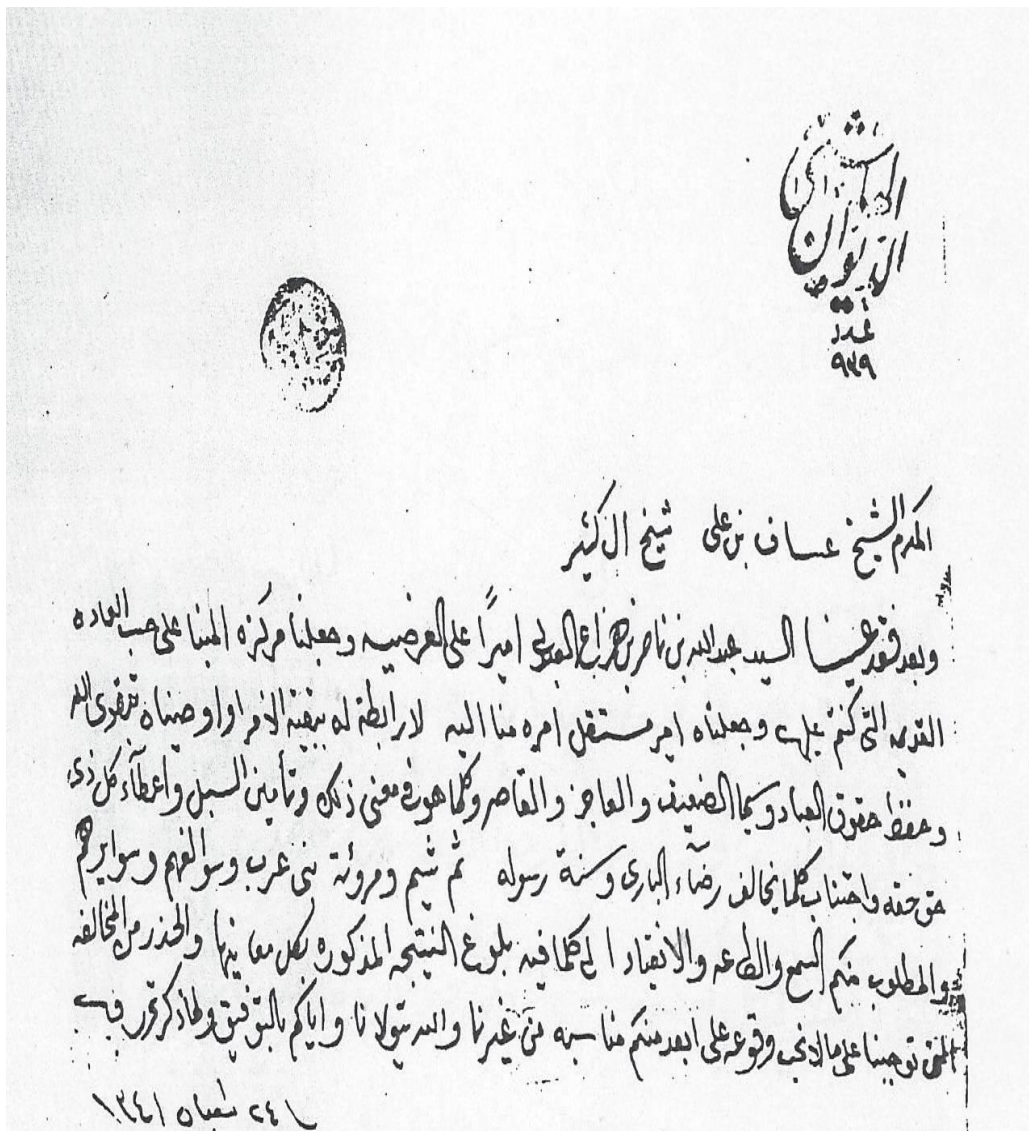 الديوان الهاشمي
عدد
٩٣٩
المكرم الشيخ عساف بن علي شيخ ال كثير
وبعد فقد عينا السيد عبدالله بن ناصر بن هزاع العبدلي اميراً على العرضيه وجعلنا مركزه المبنا على حسب العاده
القديمه التي كنتم عليها وجعلناه امير مستقل امره منا اليه لا رابطة له ببقية الامراء واوصيناه بتقوى الله
وحفظ حقوق العباد وسيما الضعيف والعاجز والقاصر وكلما هو في معنى ذلك وتأمين السبل واعطآء كل ذي
حق حقه واجتناب كلما يخالف رضآء الباري وسنة رسوله ثم شيم ومروئة بني عرب وسوالفهم وسوايرهم
والمطلوب منكم السمع والطاعه والانقياد الى كلما فيه بلوغ النتيجه المذكوره بكل معانيها والحذر من المخالفه
التي توجبنا على مالا نحب وقوعه على ابعد منكم مناسبه من غيرنا والله يتولانا واياكم بالتوفيق ولماذكر تحرر في
٢٤ شعبان ١٣٤١